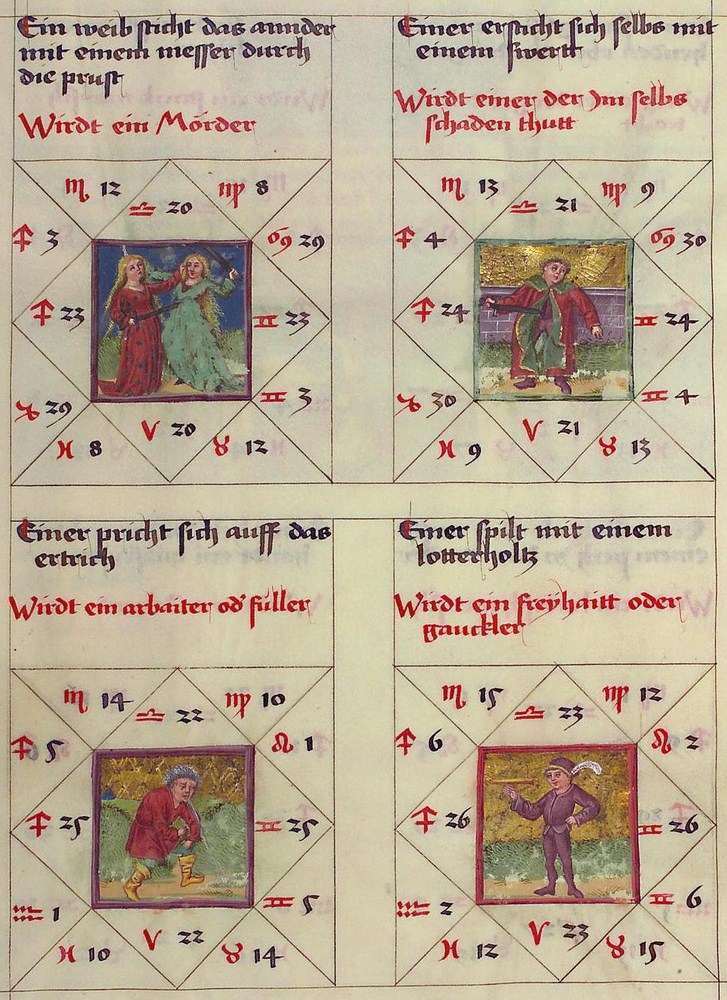 Ein weib sticht das annder
mit einem messer durch
die prust
Wirdt ein Mörder
♏ 12
♎ 20
♍ 8
♐ 3
♋ 29
♐ 23
♊ 23
♑ 29
♊ 3
♓ 8
♈ 20
♉ 12
Einer ersticht sich selbs mit
einem swertt
Wirdt einer der Jm selbs
schaden thutt
♏ 13
♎ 21
♍ 9
♐ 4
♋ 30
♐ 24
♊ 24
♑ 30
♊ 4
♓ 9
♈ 21
♉ 13
Einer pricht sich auff das
ertrich
Wirdt ein arbaiter od füller
♏ 14
♎ 22
♍ 10
♐ 5
♌ 1
♐ 25
♊ 25
♒ 1
♊ 5
♓ 10
♈ 22
♉ 14
Einer spilt mit einem
lotterholtz
Wirdt ein freyhaitt oder
gauckler
♏ 15
♎ 23
♍ 12
♐ 6
♌ 2
♐ 26
♊ 26
♒ 2
♊ 6
♓ 12
♈ 23
♉ 15